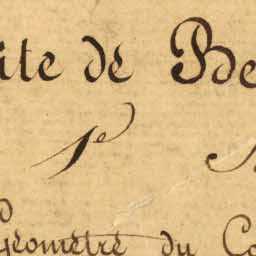 ite de Be
1e
Géomètre du Co